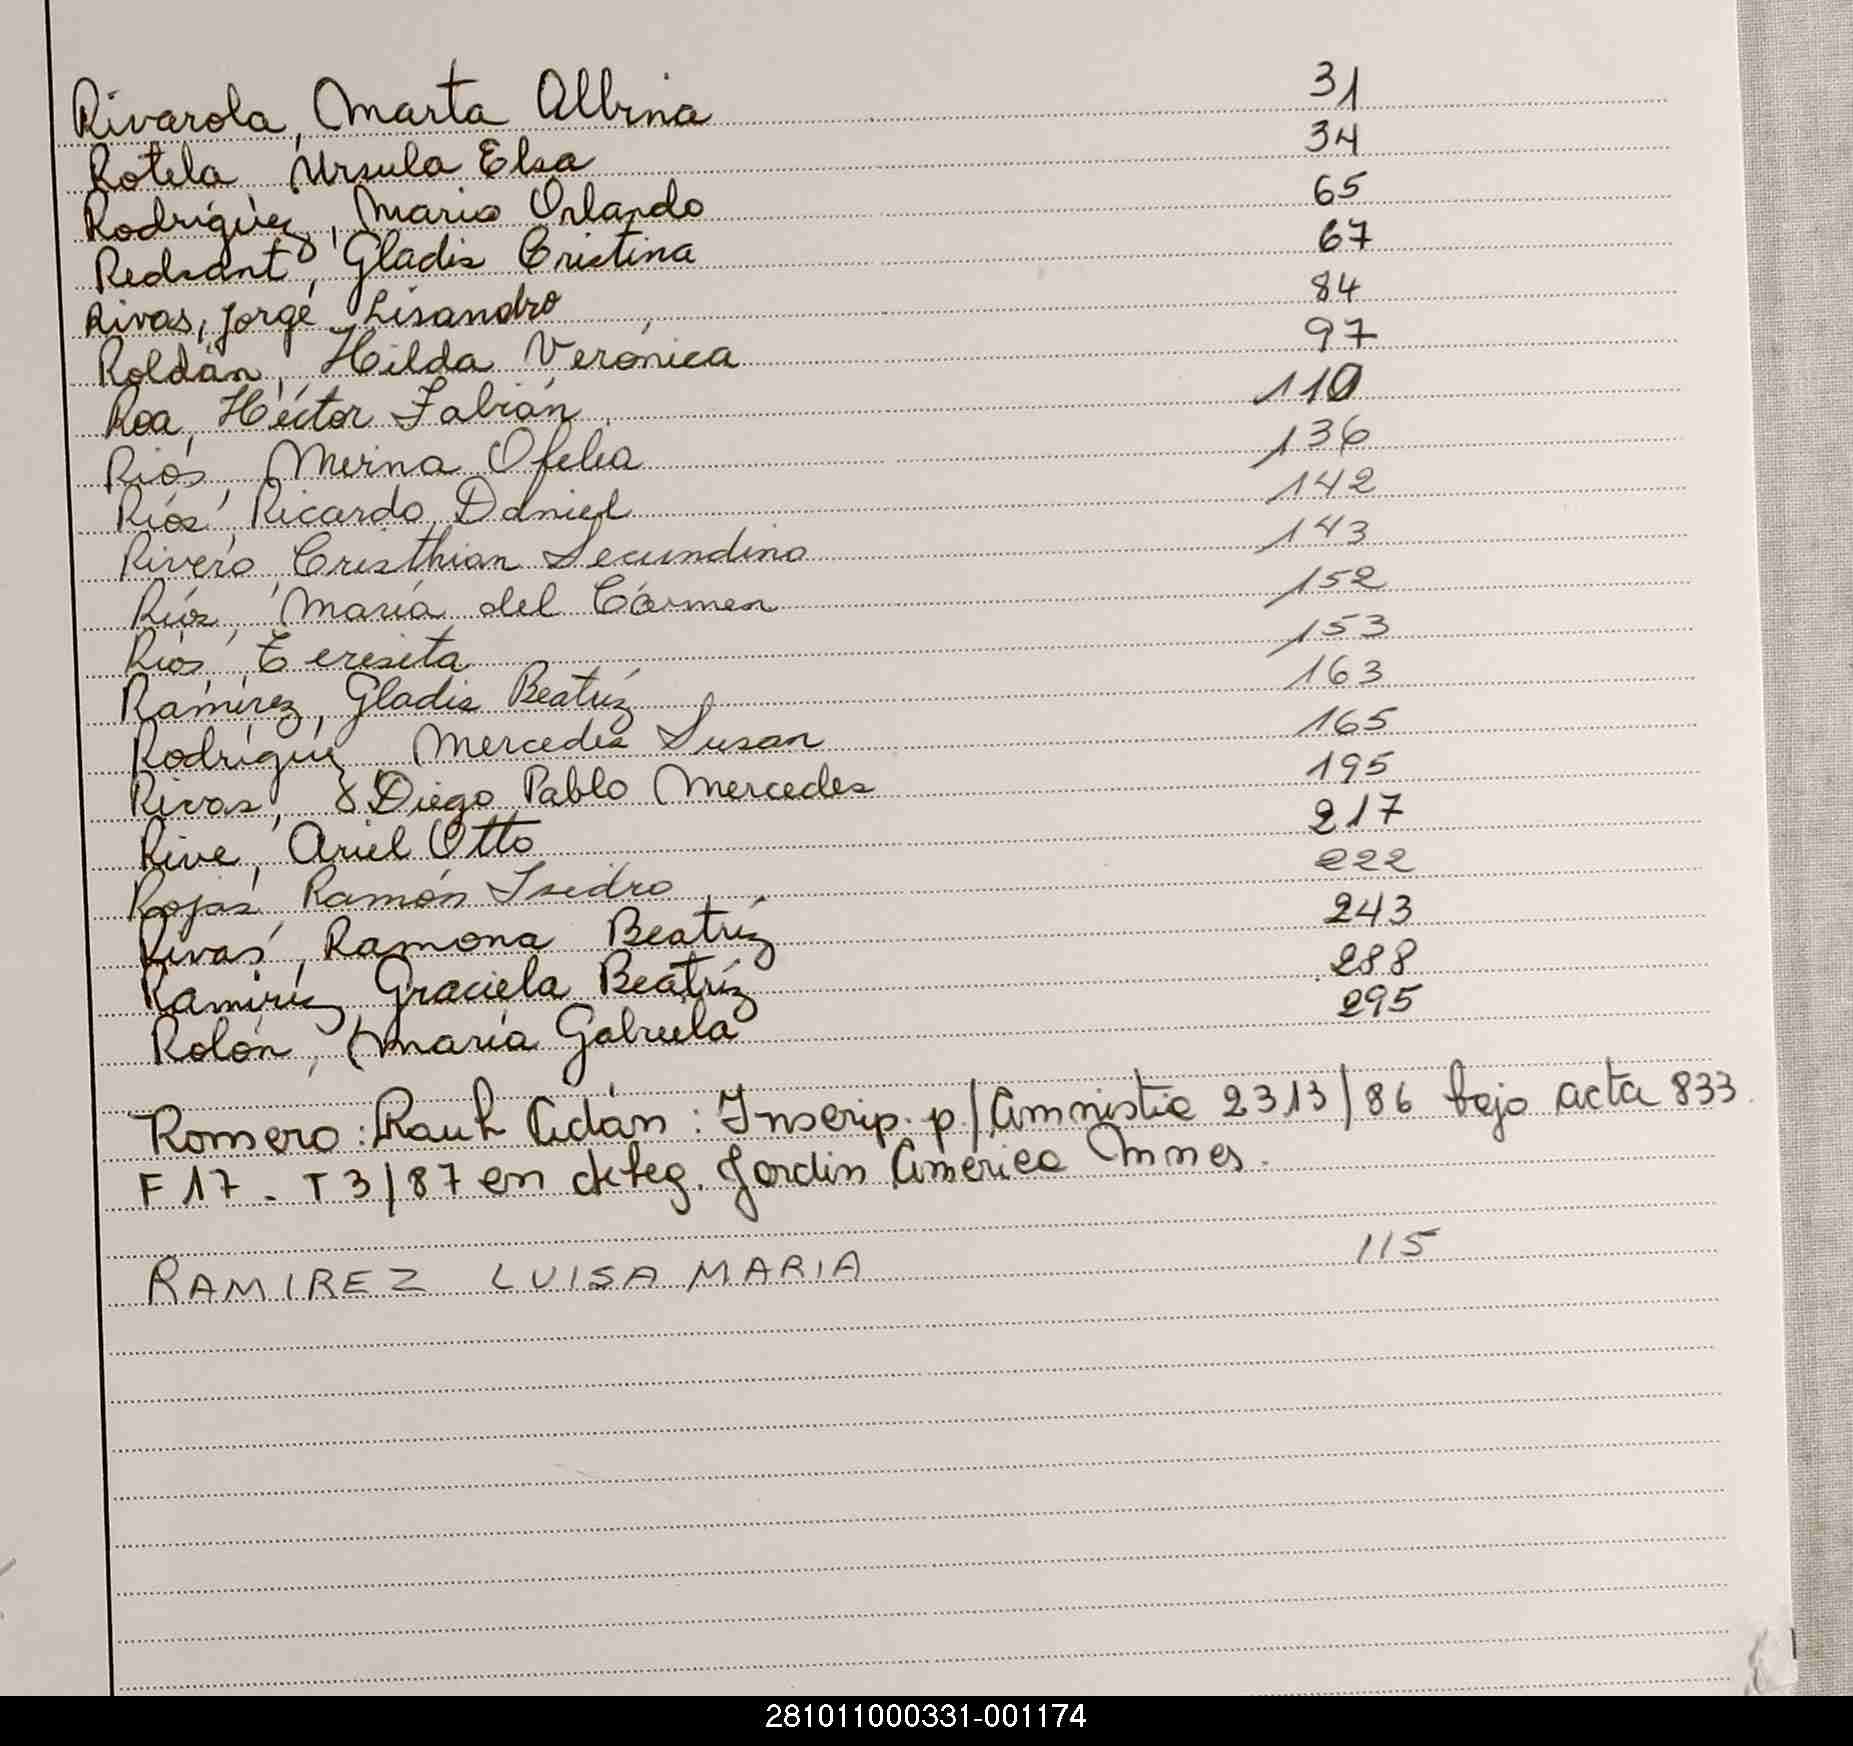 Rivarola, Marta Albina 31
Rotela Ursula Elsa 34
Rodríguez, Mario Orlando 65
Redsant, Gladis Cristina 67
Rivas, Jorge Lisandro 84
Roldán, Hilda Verónica 97
Roa, Héctor Fabián 110
Ríos, Mirna Ofelia 136
Ríos, Ricardo Daniel 142
Rivero, Cristhian Secundino 143
Ríos, María del Carmen 152
Ríos, Teresita 153
Ramírez, Gladis Beatríz 163
Rodríguez Mercedes Susan 165
Rivas, Diego Pablo Mercedes 195
Rive, Ariel Otto 217
Rojas, Ramón Isidro 222
Rivas, Ramona Beatríz 243
Ramírez, Graciela Beatríz 288
Rolón, María Gabriela 295
Romero: Raul Adán: Inscrip. p/ Amnistia 2313/86 bajo acta 833
F 17 - T 3/87 en deleg. Jardin América Mnes.
RAMIREZ LUISA MARIA 115
281011000331-001174